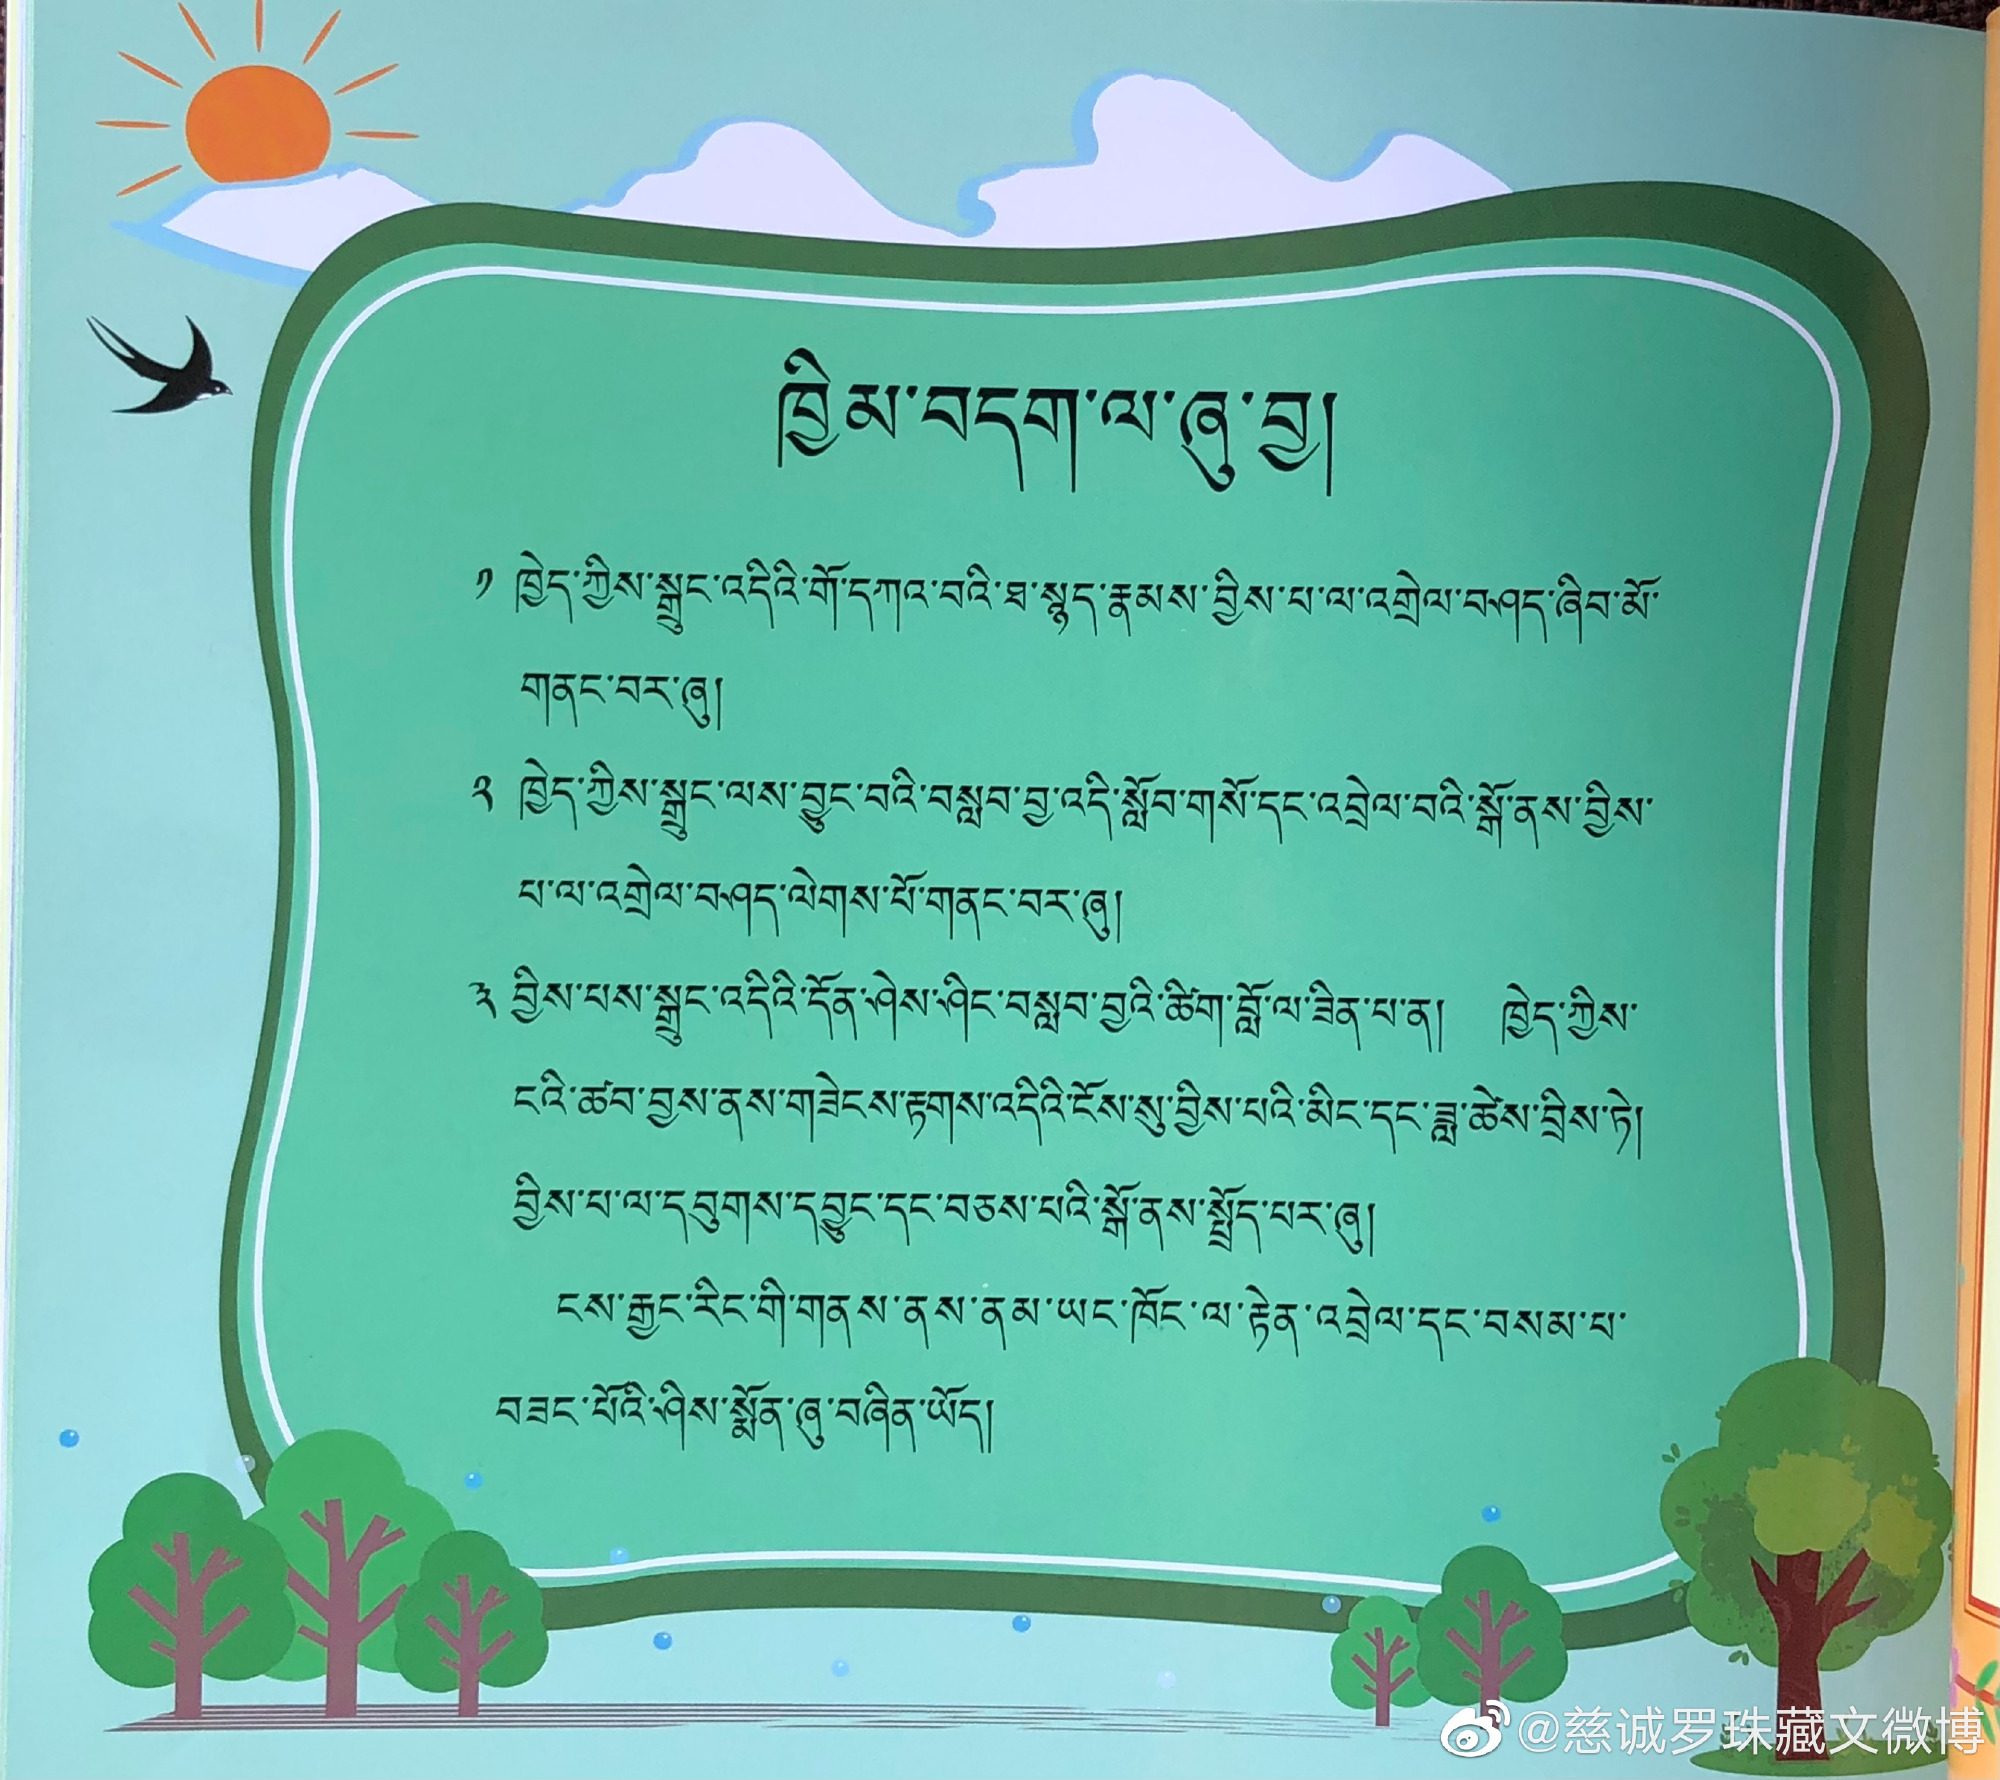 ཁྱིམ་བདག་ལ་ཞུ་བྱ།
༡ ཁྱེད་ཀྱིས་སྒྲུང་འདིའི་གོ་དཀའ་བའི་ཐ་སྙད་རྣམས་བྱིས་པ་ལ་འགྲེལ་བཤད་ཞིབ་མོ་
གནང་བར་ཞུ།
༢ ཁྱེད་ཀྱིས་སྒྲུང་ལས་བྱུང་བའི་བསླབ་བྱ་འདི་སློབ་གསོ་དང་འབྲེལ་བའི་སྒོ་ནས་བྱིས་
པ་ལ་འགྲེལ་བཤད་ལེགས་པོ་གནང་བར་ཞུ།
༣ བྱིས་པས་སྒྲུང་འདིའི་དོན་ཤེས་ཤིང་བསླབ་བྱའི་ཚིག་བློ་ལ་ཟིན་པ་ན། ཁྱེད་ཀྱིས་
ངའི་ཚབ་བྱས་ནས་གཟེངས་རྟགས་འདིའི་ངོས་སུ་བྱིས་པའི་མིང་དང་ཟླ་ཚེས་བྲིས་ཏེ།
བྱིས་པ་ལ་དབུགས་དབྱུང་དང་བཅས་པའི་སྒོ་ནས་སྤྲོད་པར་ཞུ།
ངས་རྒྱང་རིང་གི་གནས་ནས་ནམ་ཡང་ཁོང་ལ་རྟེན་འབྲེལ་དང་བསམ་པ་
བཟང་པོའི་ཤིས་སྨོན་ཞུ་བཞིན་ཡོད།
@慈诚罗珠藏文微博